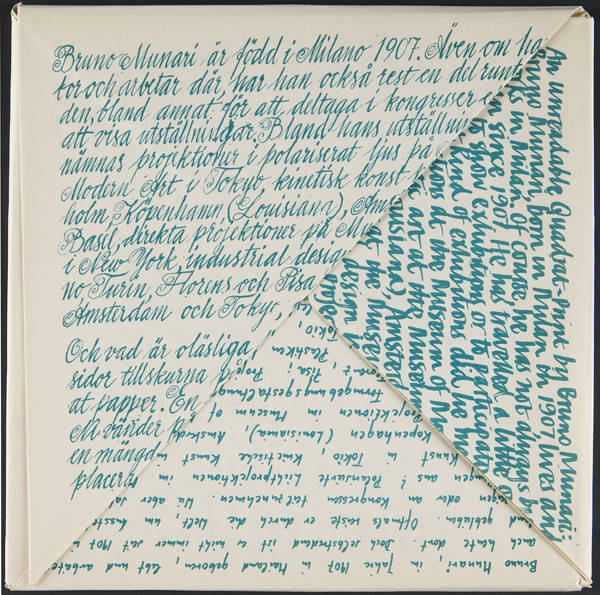 Bruno Munari är född i Milano 1907. Även om ha
tor och arbetar där, har han också rest en del runt
den, bland annat för att deltaga i kongresser
att visa utställningar. Bland hans utställn
nämnas projektioner i polariserat ljus på
Modern Art i Tokyo, kinetisk konst
holm, Köpenhamn (Louisiana), Am
Basel, direkta projektioner på Mu
i New York, industrial desig
no, Turin, Florens och Pisa
Amsterdam och Tokyo,
Och vad är oläsliga
sidor tillskurna p
at papper. En
M vänder p
en mängd
placera
An unreadable Quadrat-Print by Bruno Munari:
Bruno Munari born in Milan in 1907 lives and
in Milan, of course he has not always
since 1907. He has travelled a little
to show exhibitions or to participate
kind of exhibitions did he
tions at the Museum of M
art at the Museu
uisiana), Amster
at the Museum
design in
Projec
Bruno Munari, im Jahre 1907 in Mailand geboren, lebt und arbeite
auch heute dort. Doch selbstredend ist er nicht immer seit 1907
und geblieben. Oftmals reiste er durch die Welt, um hasste
ungen oder an Kongressen teilzunehmen. Wie aber
ungen aus? Polarisierte Lichtprojektionen im
Kunst in Tokio, Kinetische Kunst in
Kopenhagen (Louisiana), Amsterd
Projektionen im Museum of
Formgebunggestaltung
Florenz, Pisa; Proje
Tokio, Plastiken